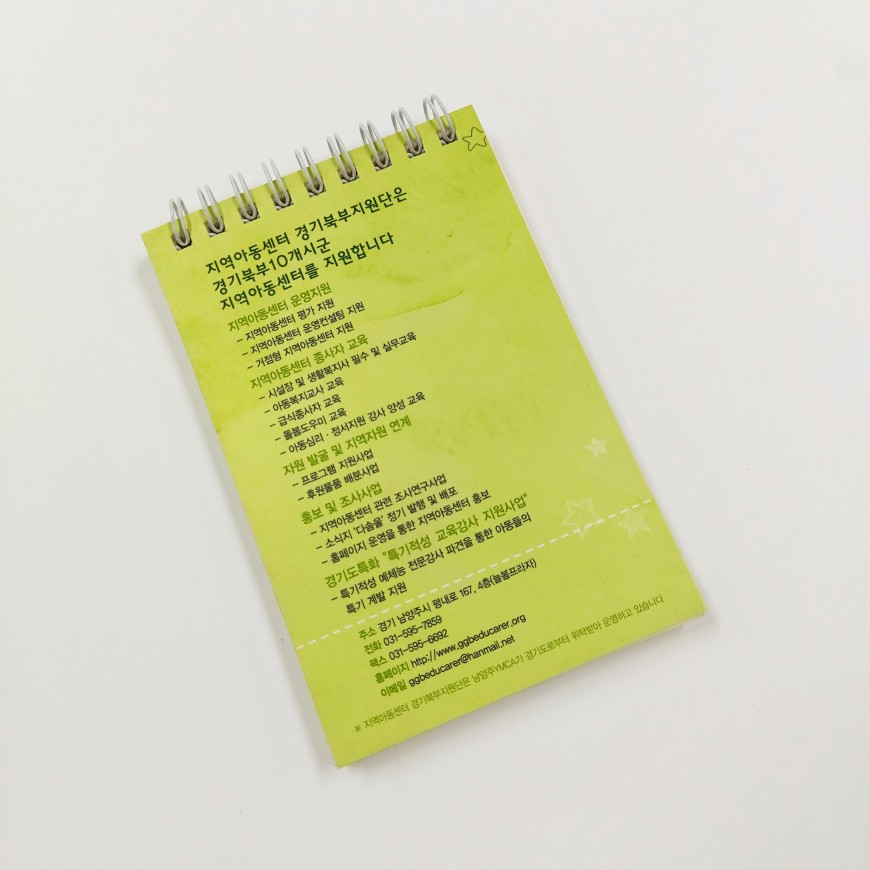 지역아동센터 경기북부지원단은
경기북부10개시군
지역아동센터를 지원합니다
지역아동센터 운영지원
- 지역아동센터 평가 지원
- 지역아동센터 운영컨설팅 지원
- 거점형 지역아동센터 지원
지역아동센터 종사자 교육
- 시설장 및 생활복지사 필수 및 실무교육
- 아동복지교사 교육
- 급식종사자 교육
- 돌봄도우미 교육
- 아동심리 · 정서지원 강사 양성 교육
자원 발굴 및 지역자원 연계
- 프로그램 지원사업
- 후원물품 배분사업
홍보 및 조사사업
- 지역아동센터 관련 조사연구사업
- 소식지 '다솜울' 정기 발행 및 배포
- 홈페이지 운영을 통한 지역아동센터 홍보
경기도특화 "특기적성 교육강사 지원사업"
- 특기적성 예체능 전문강사 파견을 통한 아동들의
특기 계발 지원
주소 경기 남양주시 평내로 167, 4층(늘봄프라자)
전화 031-595-7859
팩스 031-595-6692
홈페이지 http://www.ggbeducarer.org
이메일 ggbeducarer@hanmail.net
※ 지역아동센터 경기북부지원단은 남양주YMCA가 경기도로부터 위탁받아 운영하고 있습니다